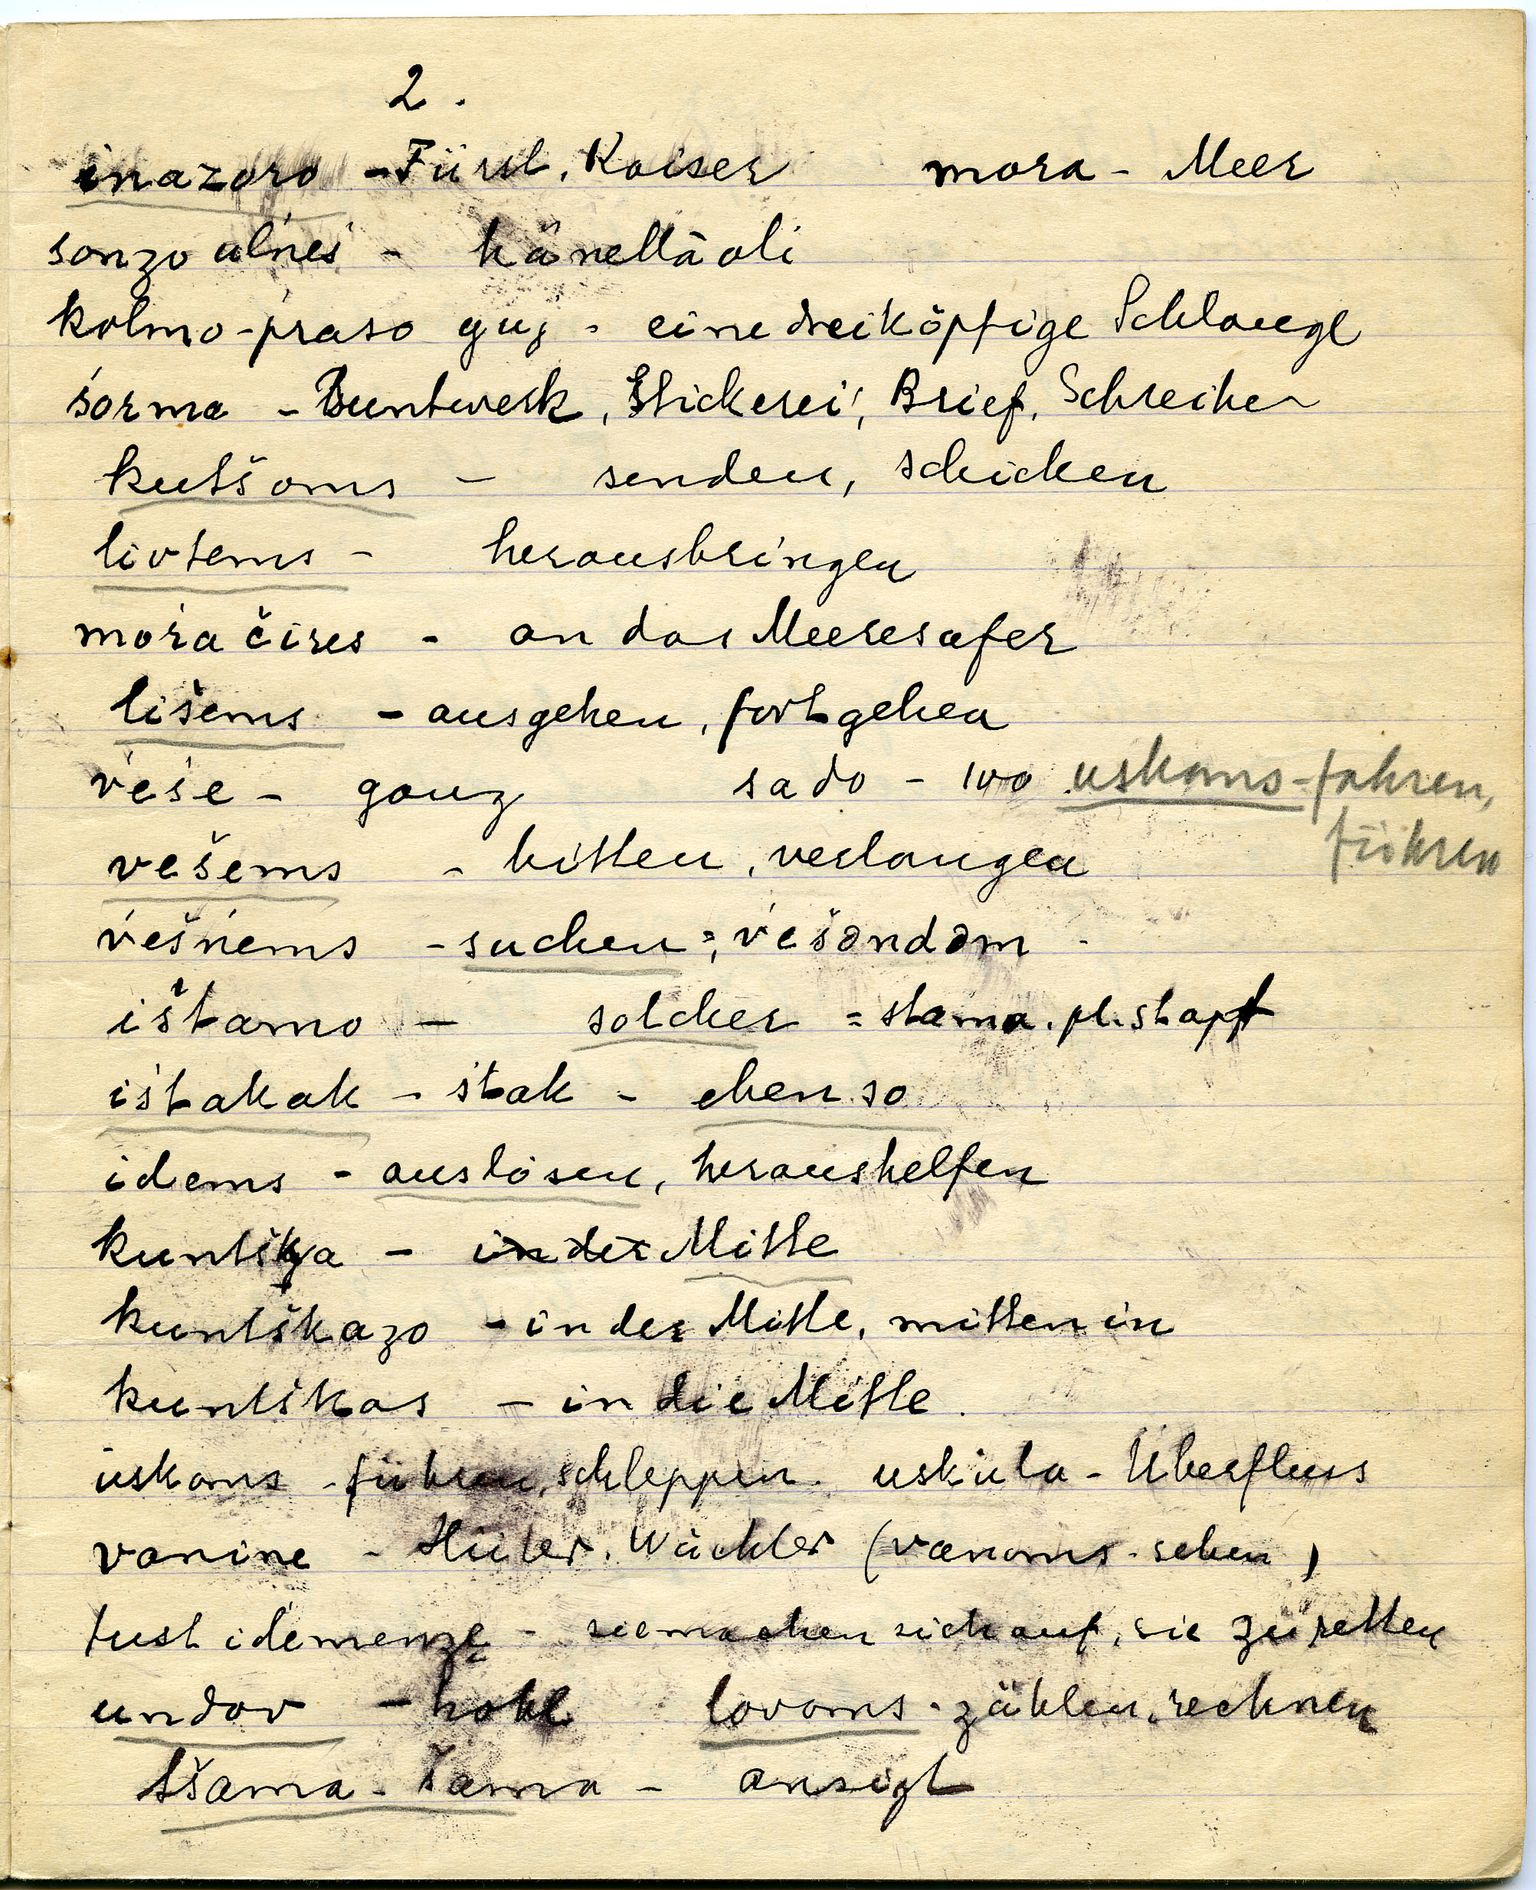 2.
inazoro - Fürst, Kaiser mora - Meer
sonzo alneś - häneltä oli
kolmo-praso guj - eine dreiköpfige Schlange
śorma - Buntwerk, Stickerei, Brief, Schreiben
kutšoms - senden, schicken
livtems - herausbringen
moŕa čires - an das Meeresufer
lišems - ausgehen, fortgehen
veśe - ganz sado - 100 uskoms - fahren,
führen
vešems - bitten, verlangen
v́ešńems - suchen = v́ešəndəm
ištamo - solcher = stama. pl. stapt
iśtakak - śtak - ebenso
idems - auslösen, heraushelfen
kuntška - in der Mitte
kuntškazo - in der Mitte, mitten in
kuntškas - in die Mitte.
uskoms - führen, schleppen. uskula - Überfluss
vanine - Hüter, Wächter (vanoms - sehen)
tust idemenze - sie machen sich auf, sie zu retten
undov - hohl lovoms - zählen, rechnen
tšama - šama - ansigt